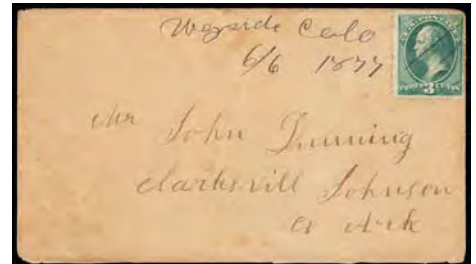 Wayside Colo
6/6 1877
Mr John Dunning
Clarksvill Johnson
Co Ark